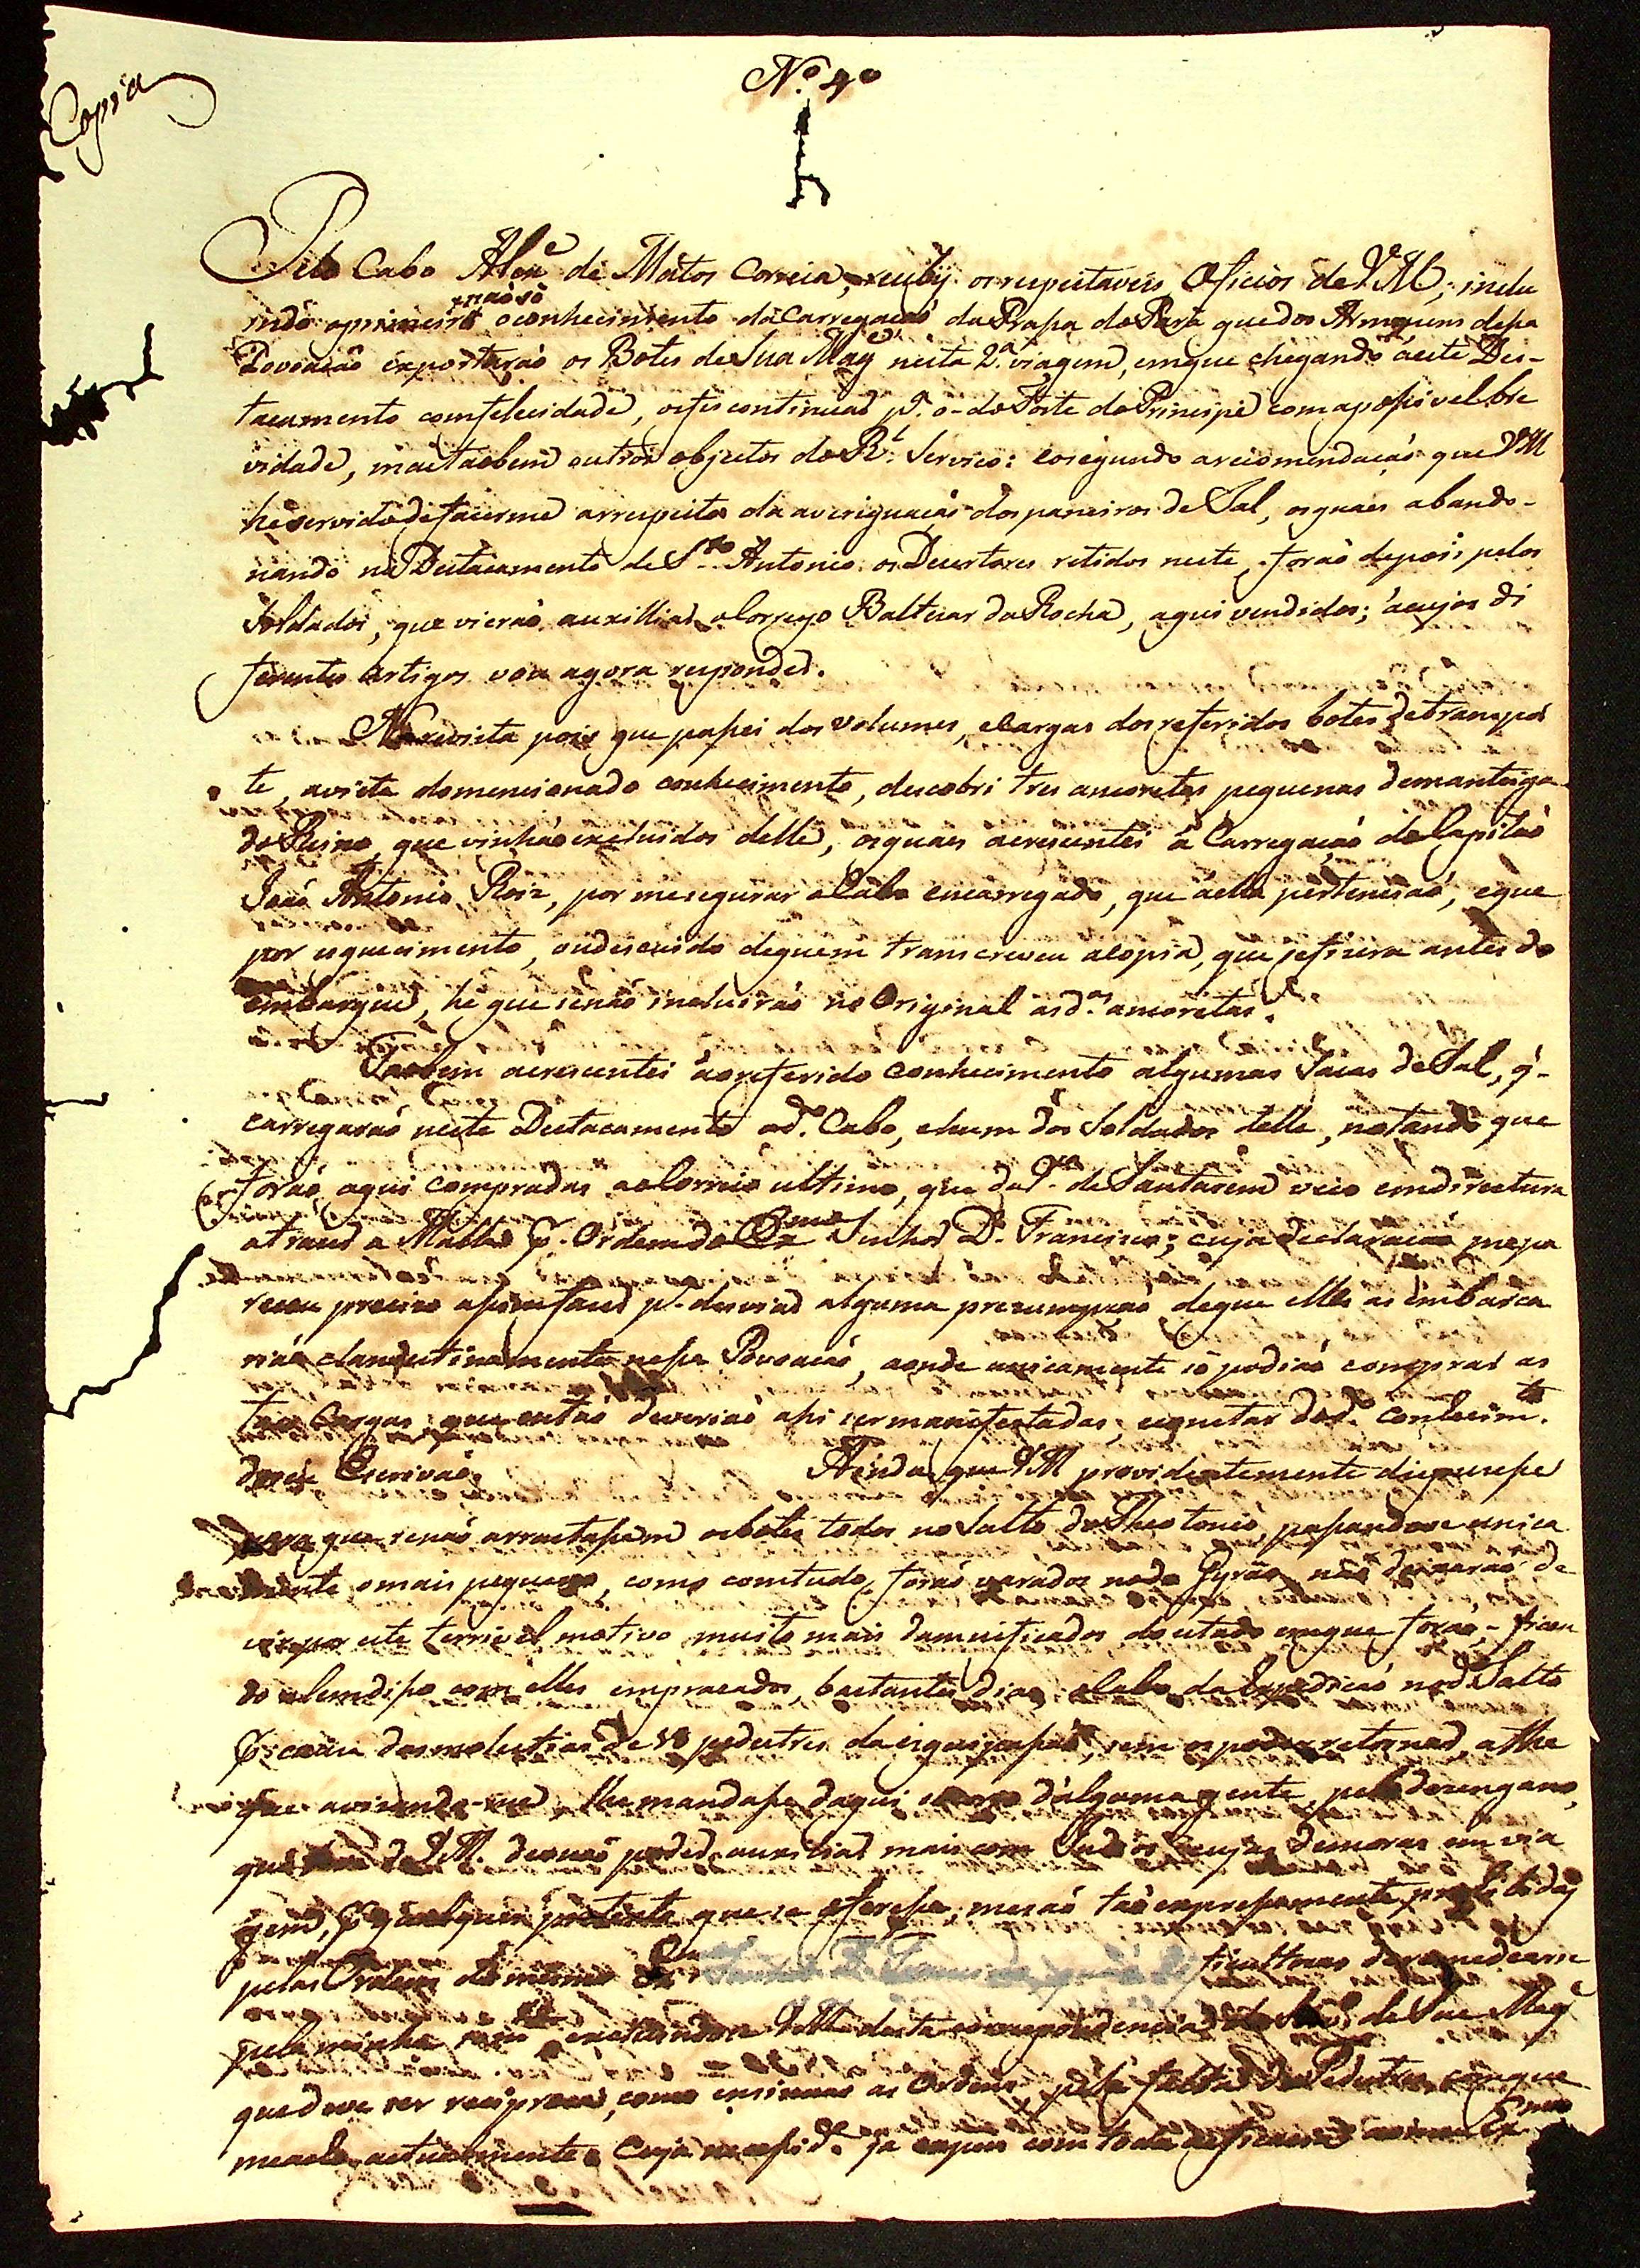 Copia
N.º 4º
Pelo Cabo Alexe de Matos Correia, recebÿ os respeitaveis Oficios de V.M.; inclu
não só
indo oprimeiro oconhecimento da Carregação da Praça do Pará que dos Armazens dessa
Povoação exportarão os Botes de Sua Mage nesta 2.ª viagem, emque chegando áeste Des-
tacamento comfelecidade, osfis continuar p.ª o do Forte do Principe comapossivel bre
vidade, mas taobem outros objectos do R.l Servico: eosegundo arecomendação que VM
heservido defacerme arrespeito da averiguação dos paneiros de Sal, osquaes abando-
nando no Destacamento de S.to Antonio os Desertores retidos neste, forão depois pelos
Soldados, que vierão auxilliar oCorreyo Baltezar da Rocha, aqui vendidos; ácujos di
ferentes artigos vou agora responder.
Na revista pois que passei dos volumes, ecargas dos referidos botes detranspor
te, avista domencionado conhecimento, descobri tres ancoretas pequenas demanteiga
do Reino, que vinhão excluidos delle, osquaes acrescentei á Carregação do Capitão
João Antonio Roiz, por mesegurar oCabo encarregado, que áella pertencião, eque
por esquecimento, oudescuido dequem transcreveu acopia, que sefizera antes do
embarque, he que senão incluirão no Original asd.as ancoretas.
Taobem acrescentei áoreferido conhecimento algumas Sacas de Sal, q̃
carregarão neste Destacamento od.o Cabo, ehum dos Soldados delle, notando que
forão aqui compradas aoCorreio ultimo, que da V.la de Santarem veio emdireitura
atraser a Malla p.r Ordem do Exmo Senhor D. Francisco; cuja declaração mepa
receu preciso assim faser p.a desviar alguma presumpção deque elles as embarca
rião clandestinamente nessa Povoação, aonde unicamente só podião comprar as
taes Cargas, que então deverião ahi ser manifestadas, econstar dod.o conhecim.to
desse Escrivão. Ainda que VM providentemente dispusesse
para que senão arrastassem osbotes todos no Salto do Theotonio, passandose unica
mente omais pequeno, como comtudo forão varados no do Gyrão, não deixarão de
vir por este terrivel motivo muito mais damnificados doestado emque forão, fican
do alemdisso com elles empracados, bastantes dias oCabo da Expedição nod.o Salto
p.r causa dasmolestias de 10 pedestres da esquipação, sem ospoder retornar, athe
que avisando-me, lhe mandasse daqui dalguma gente, pelo desengano,
que de VM. denão poder auxiliar mais com Indios, cujas demoras em via
gem, p.r qualquer pretexto que se oferessa, mesão tão expressamente prohibidas
pelas Ordens domesmo Exmo ficultoso de remedearse
pela minha p.te VM desta correspondencia de Sua Mage
que deve ser reciproca, como ensinuão as Ordens, pela falta de Pedestres, comque
meacho actualmente, Cuja necessid.e ja expuz com toda eficacia aomesmo Exmo